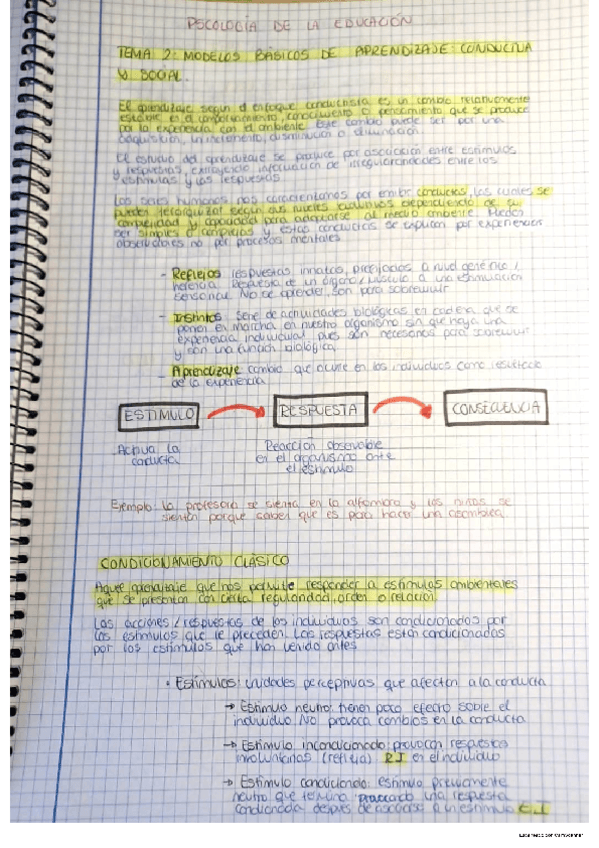 PSCOLOGÍA DE LA EDUCACIÓN
TEMA 2: MODELOS BÁSICOS DE APRENDIZAJE: CONDUCTUA
Y SOCIAL.
El aprendizaje según el enfoque conductista es un cambio relativamente
estable en el comportamiento, conocimiento o pensamiento que se produce
por la experiencia con el ambiente. Este cambio puede ser por una
adquisición, un incremento, disminución o eliminación.
El estudio del aprendizaje se produce por asociación entre estímulos
y respuestas, extrayendo información de entre los
estímulos y las respuestas.
Los seres humanos nos caracterizamos por emitir conductas, las cuales se
pueden jerarquizar según sus niveles evolutivos dependiendo de su
complejidad y capacidad para adaptarse al medio ambiente. Pueden
ser simples o complejas y estas conductas se explican por experiencias
observadores no por procesos mentales.
- Reflejos: respuestas innatas, prefijadas a nivel genético /
herencia. Respuesta de un órgano / músculo a una estimulación
sensorial. No se aprender, son para sobrevivir
- Instintos: Serie de actividades biológicas en cadena que se
ponen en marcha en nuestro organismo sin que haya una
experiencia individual, pues son necesarios para sobrevivir
y son una función biológica.
- Aprendizaje: cambio que ocurre en los individuos como resultado
de la experiencia
ESTÍMULO RESPUESTA CONSECUENCIA
Activa la
conducta
Reacción observable
en el organismo ante
el estímulo
Ejemplo: la profesora se sienta en la alfombra y los niños se
sientan porque saben que es para hacer una asamblea.
CONDICIONAMIENTO CLÁSICO
Aquel aprendizaje que nos permite responder a estímulos ambientales
que se presentan con cierta regularidad, orden o relación.
Las acciones / respuestas de los individuos son condicionados por
los estímulos que le preceden. Las respuestas están condicionadas
por los estímulos que han venido antes.
• Estímulos: unidades perceptivas que afectan a la conducta
→ Estímulo neutro: tienen poco efecto sobre el
individuo. No provoca cambios en la conducta
→ Estímulo incondicionado: provocan respuestas
involuntarias (refleja) R.I en el individuo
→ Estímulo condicionado: estímulo previamente
neutro que termina provocando una respuesta
condicionada después de asociarse a un estímulo E.I